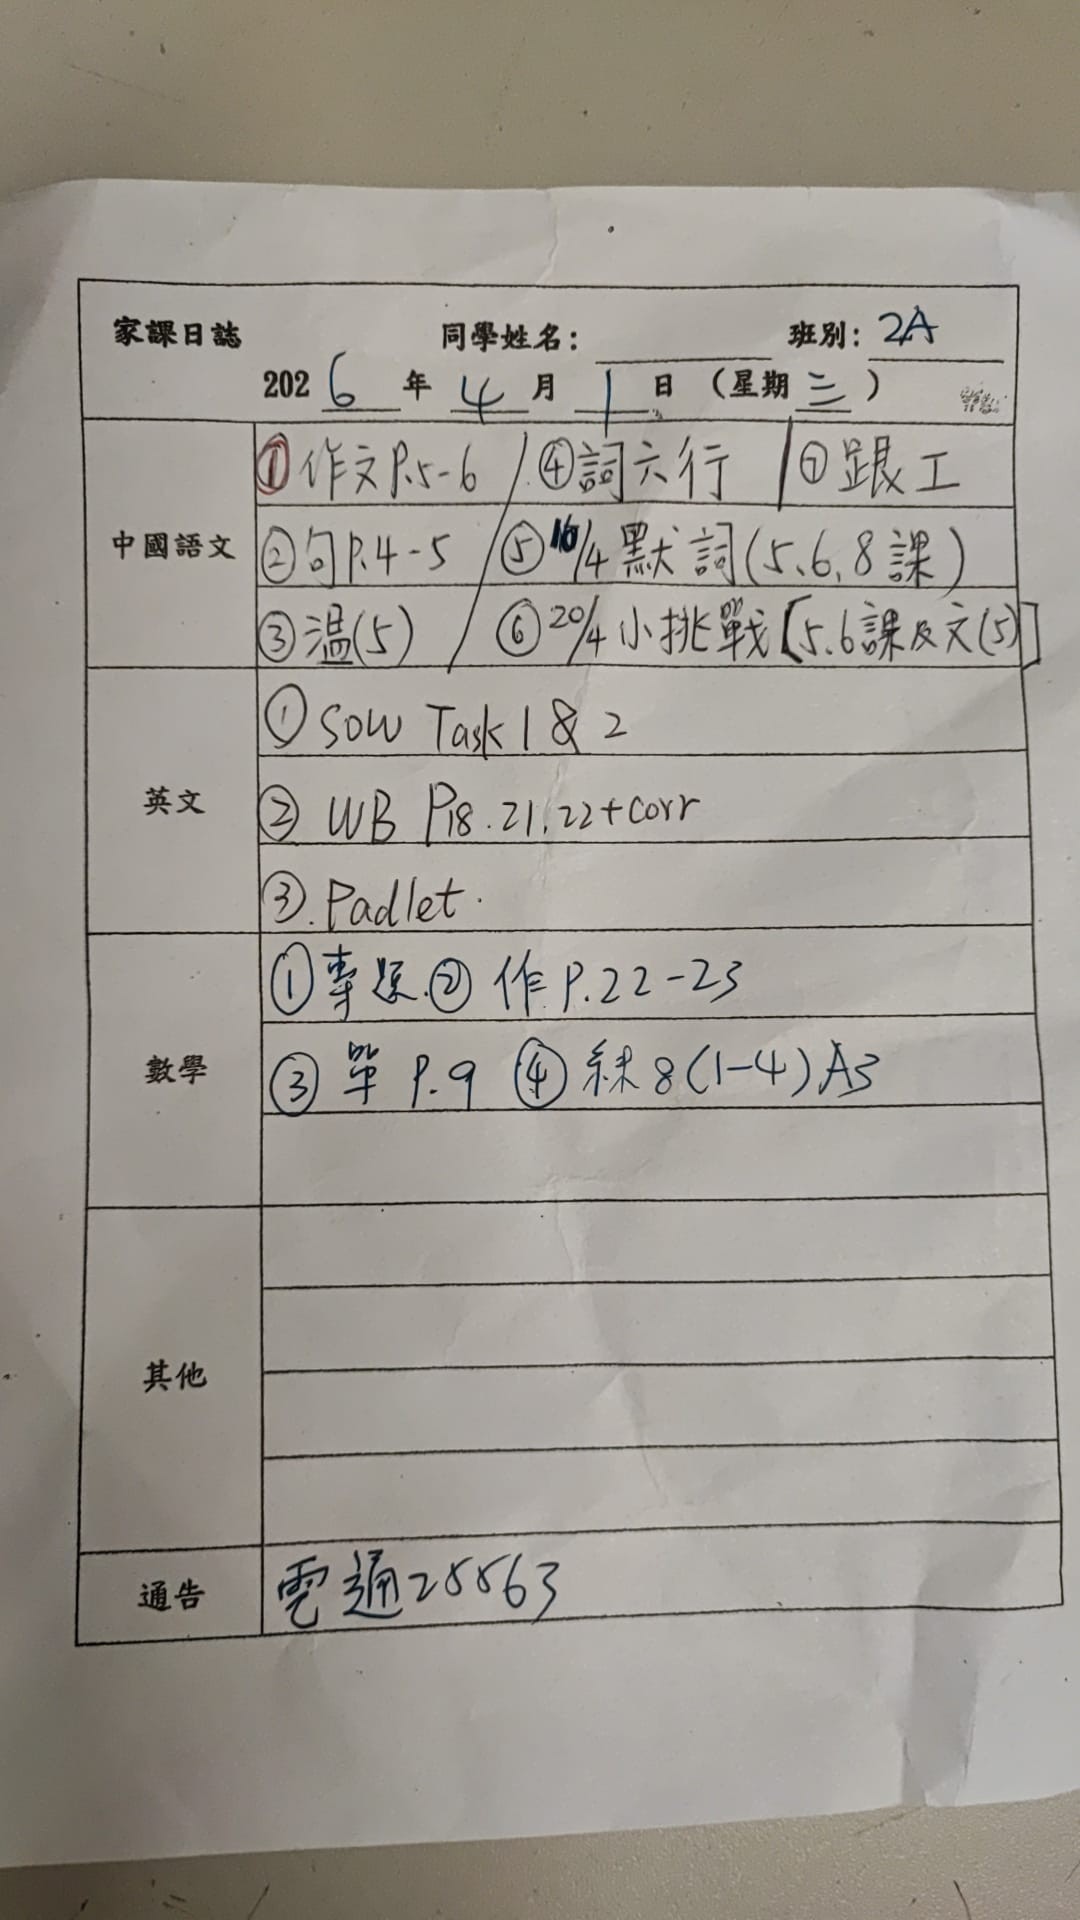 家課日誌 同學姓名： 班別：2A
2026年4月1日（星期三）
中國語文
①作文P.5-6 / ④詞六行 / ⑦跟工
②句P.4-5 / ⑤16/4默詞(5、6、8課)
③溫(5) / ⑥20/4小挑戰【5.6課及文(5)】
英文
① SOW Task 1 & 2
② WB P18.21.22+corr
③. Padlet.
數學
①專題.② 作P.22-23
③ 單 P.9 ④ 練8(1-4)A3
其他
通告
電通25563